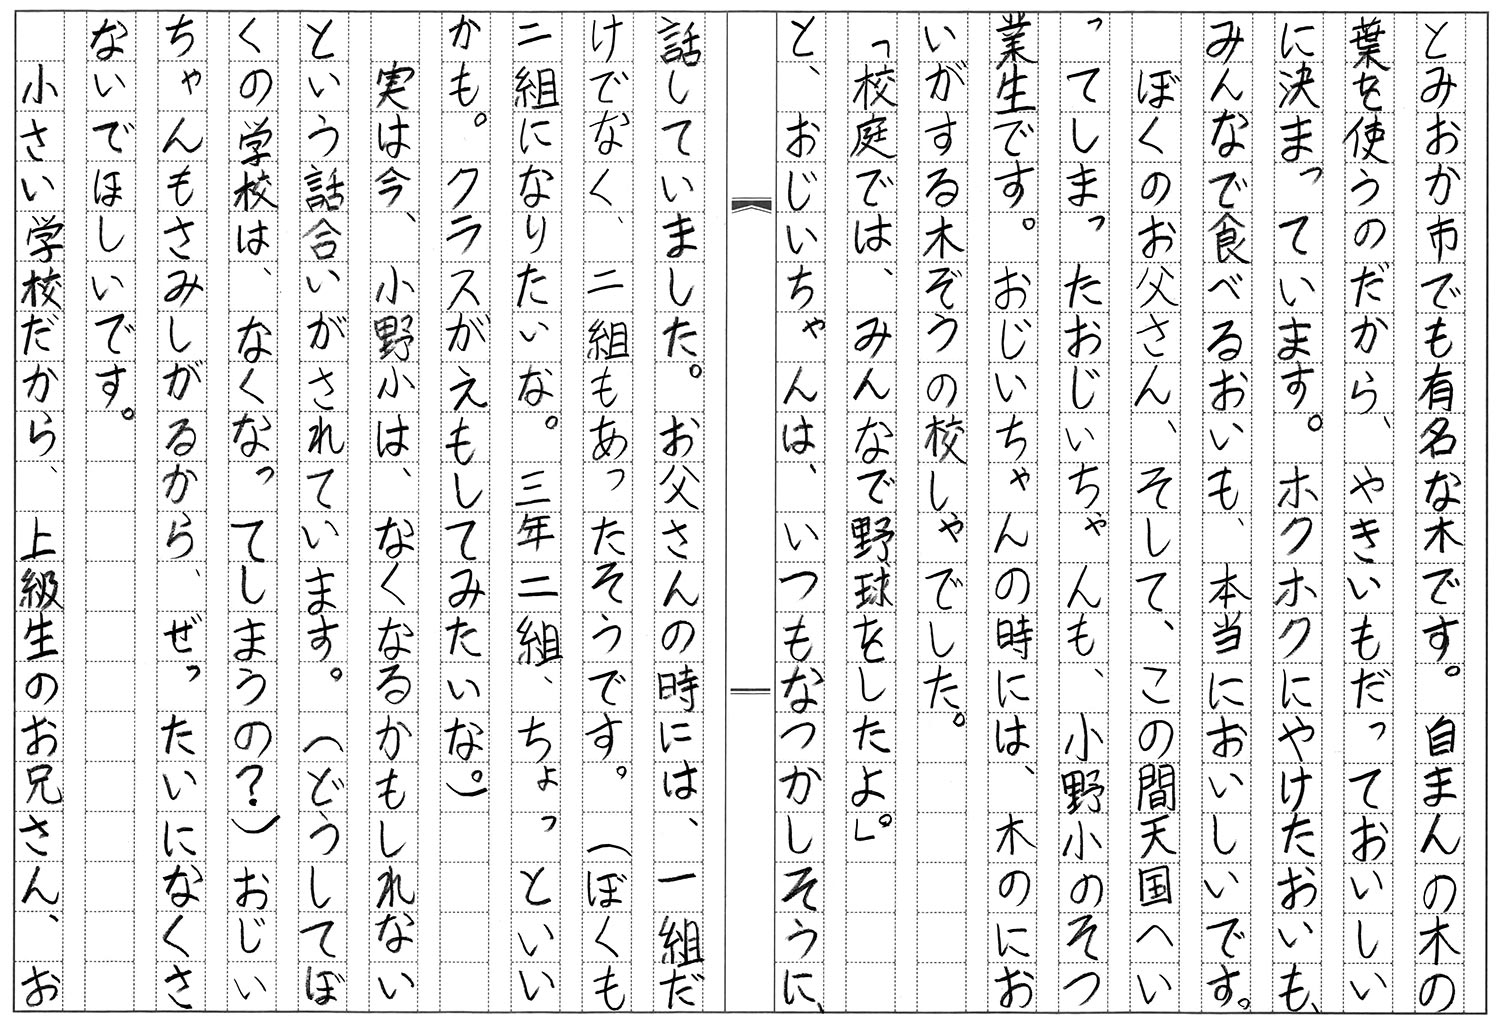 とみおか市でも有名な木です。自まんの木の
葉を使うのだから、やきいもだっておいしい
に決まっています。ホクホクにやけたおいも、
みんなで食べるおいも、本当においしいです。
ぼくのお父さん、そして、この間天国へい
ってしまったおじいちゃんも、小野小のそつ
業生です。おじいちゃんの時には、木のにお
いがする木ぞうの校しゃでした。
「校庭では、みんなで野球をしたよ。」
と、おじいちゃんは、いつもなつかしそうに、
話していました。お父さんの時には、一組だ
けでなく、二組もあったそうです。（ぼくも
二組になりたいな。三年二組、ちょっといい
かも。クラスがえもしてみたいな。）
実は今、小野小は、なくなるかもしれない
という話合いがされています。（どうしてぼ
くの学校は、なくなってしまうの？）おじい
ちゃんもさみしがるから、ぜったいになくさ
ないでほしいです。
小さい学校だから、上級生のお兄さん、お